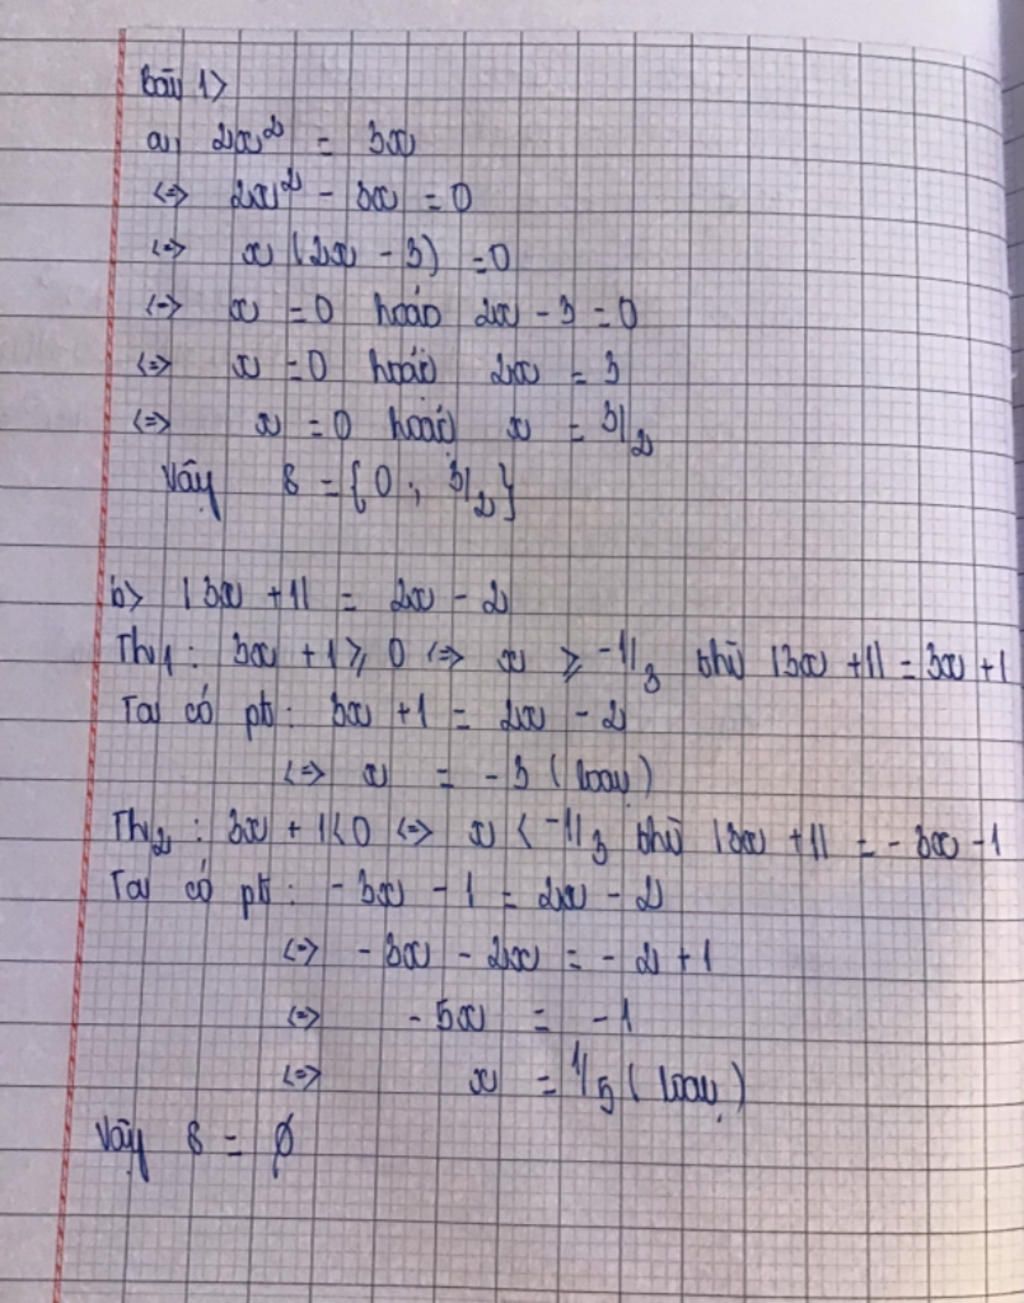 Bài 1>
a, 2x² = 3x
<=> 2x² - 3x = 0
<=> x (2x - 3) = 0
<=> x = 0 hoặc 2x - 3 = 0
<=> x = 0 hoặc 2x = 3
<=> x = 0 hoặc x = 3/2
Vậy S = {0; 3/2}
b> |3x + 1| = 2x - 2
Th1: 3x + 1 ≥ 0 <=> x ≥ -1/3 thì |3x + 1| = 3x + 1
Ta có pt: 3x + 1 = 2x - 2
<=> x = -3 (loại)
Th2: 3x + 1 < 0 <=> x < -1/3 thì |3x + 1| = -3x - 1
Ta có pt: -3x - 1 = 2x - 2
<=> -3x - 2x = -2 + 1
<=> -5x = -1
<=> x = 1/5 (loại)
Vậy S = ∅